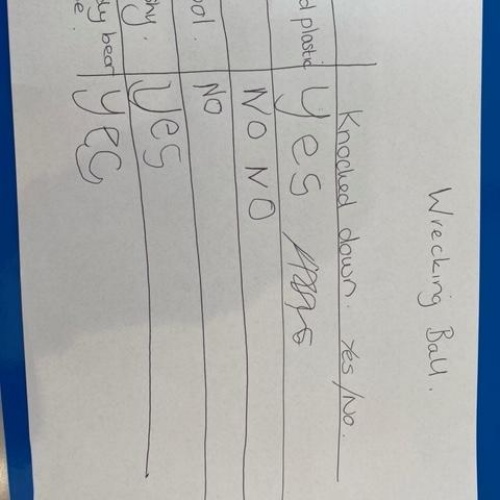 Wrecking Ball.
Knocked down. Yes/No.
d plastic yes
NO NO
ool. NO
hy. yes
dy bear yes
e.